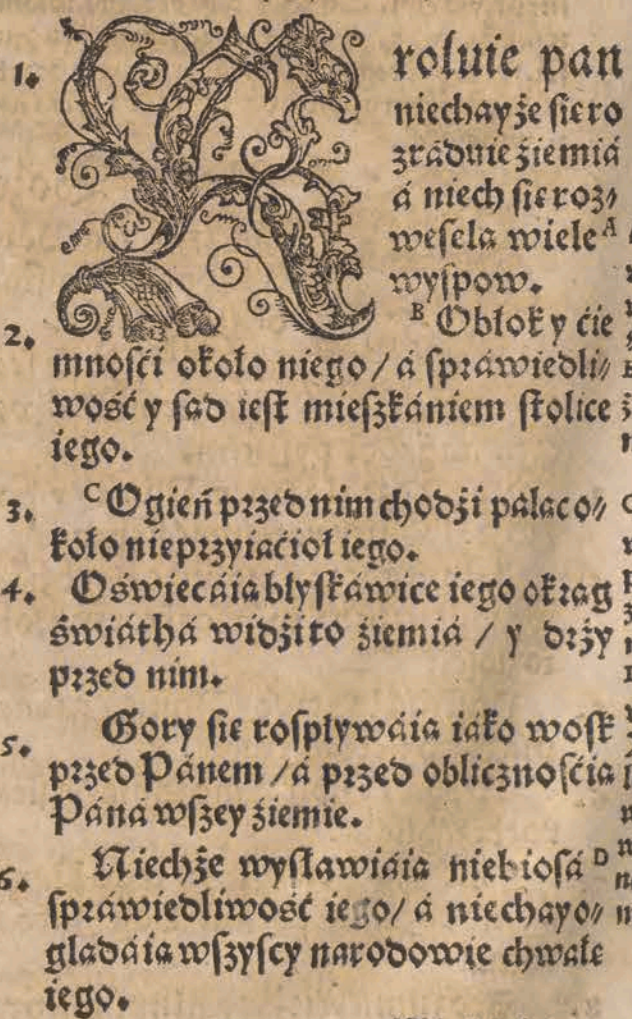 1.
Kroluie pan
niechayże sie ro
zráduie źiemiá
á niech sie roz⸗
wesela wiele A
wyspow.
2. B Obłok y ćie
mnośći około niego / á spráwiedli⸗
wość y sad iest mieszkániem stolice
iego.
3. C Ogień przed nim chodźi palac o⸗
koło nieprzyiaćioł iego.
4. Oświecáia błyskáwice iego okrag
świáthá widźi to źiemiá / y drży
przed nim.
5. Gory sie rospływáia iáko wosk
przed Pánem / á przed oblicznośćia
Páná wszey źiemie.
6. Niechże wysławiáia niebiosá D
spráwiedliwość iego / á niechay o⸗
gladáia wszyscy narodowie chwałe
iego.